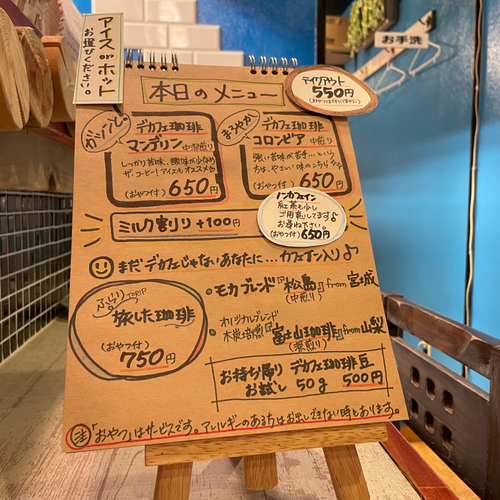 アイス or ホット
お選びください。
お手洗
本日のメニュー
テイクアウト
550円
(おやつは付けません)
ガツンと。
デカフェ珈琲
マンデリン 中深煎り
しっかり苦味、酸味が少なめ
ザ、コーヒー!アイスもオススメ
(おやつ付) 650円
まろやか
デカフェ珈琲
コロンビア 中煎り
強い苦味が苦手…という
方は、やさしい味のこちら
(おやつ付) 650円
ミルク割り +100円
ノンカフェイン
紅茶も少し
ご用意してます♪
お尋ね下さい。
(おやつ付) 650円
まだデカフェじゃないあなたに…カフェイン入り♪
DRIP
旅した珈琲
(おやつ付)
750円
・モカブレンド『松島』from宮城
(中煎り)
・オリジナルブレンド
木炭焙煎『富士山珈琲』from山梨
(深煎り)
お持ち帰り デカフェ珈琲豆
お試し 50g 500円
注 「おやつ」はサービスです。アレルギーのある方はお出しできない時もあります。